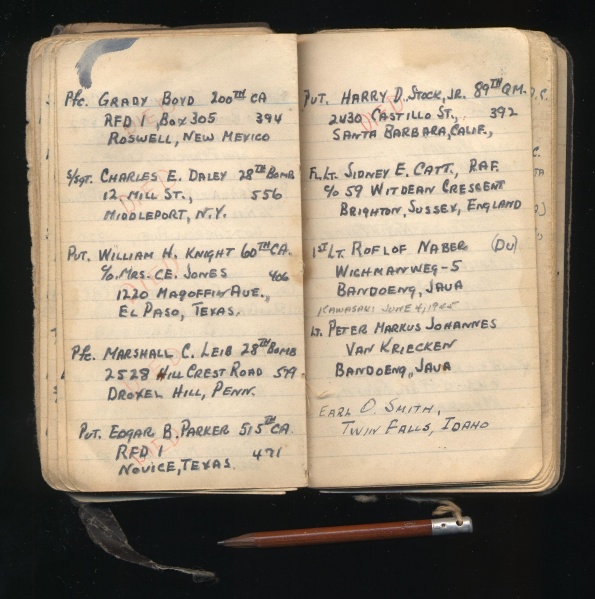 Pfc. GRADY BOYD 200TH CA
RFD 1, BOX 305 394
ROSWELL, NEW MEXICO
DIED
S/SGT. CHARLES E. DALEY 28TH BOMB
12 MILL ST., 556
MIDDLEPORT, N.Y.
DIED
PVT. WILLIAM H. KNIGHT 60TH CA.
c/o MRS. C.E. JONES 406
1220 MAGOFFIN AVE.,
EL PASO, TEXAS.
DIED
Pfc. MARSHALL C. LEIB 28TH BOMB
2528 HILL CREST ROAD 599
DREXEL HILL, PENN.
DIED
PVT. EDGAR B. PARKER 515TH CA.
RFD 1 471
NOVICE, TEXAS.
DIED
PVT. HARRY D. STOCK, JR. 89TH QM.
2430 CASTILLO ST., 392
SANTA BARBARA, CALIF.,
DIED
F.LT. SIDNEY E. CATT., RAF.
c/o 59 WITDEAN CRESCENT
BRIGHTON, SUSSEX, ENGLAND
1ST LT. ROFLOF NABER (DU)
WICHMANWEG-5
BANDOENG, JAVA
KAWASAKI JUNE 4, 1945
LT. PETER MARKUS JOHANNES
VAN KRIECKEN
BANDOENG, JAVA
EARL O. SMITH,
TWIN FALLS, IDAHO